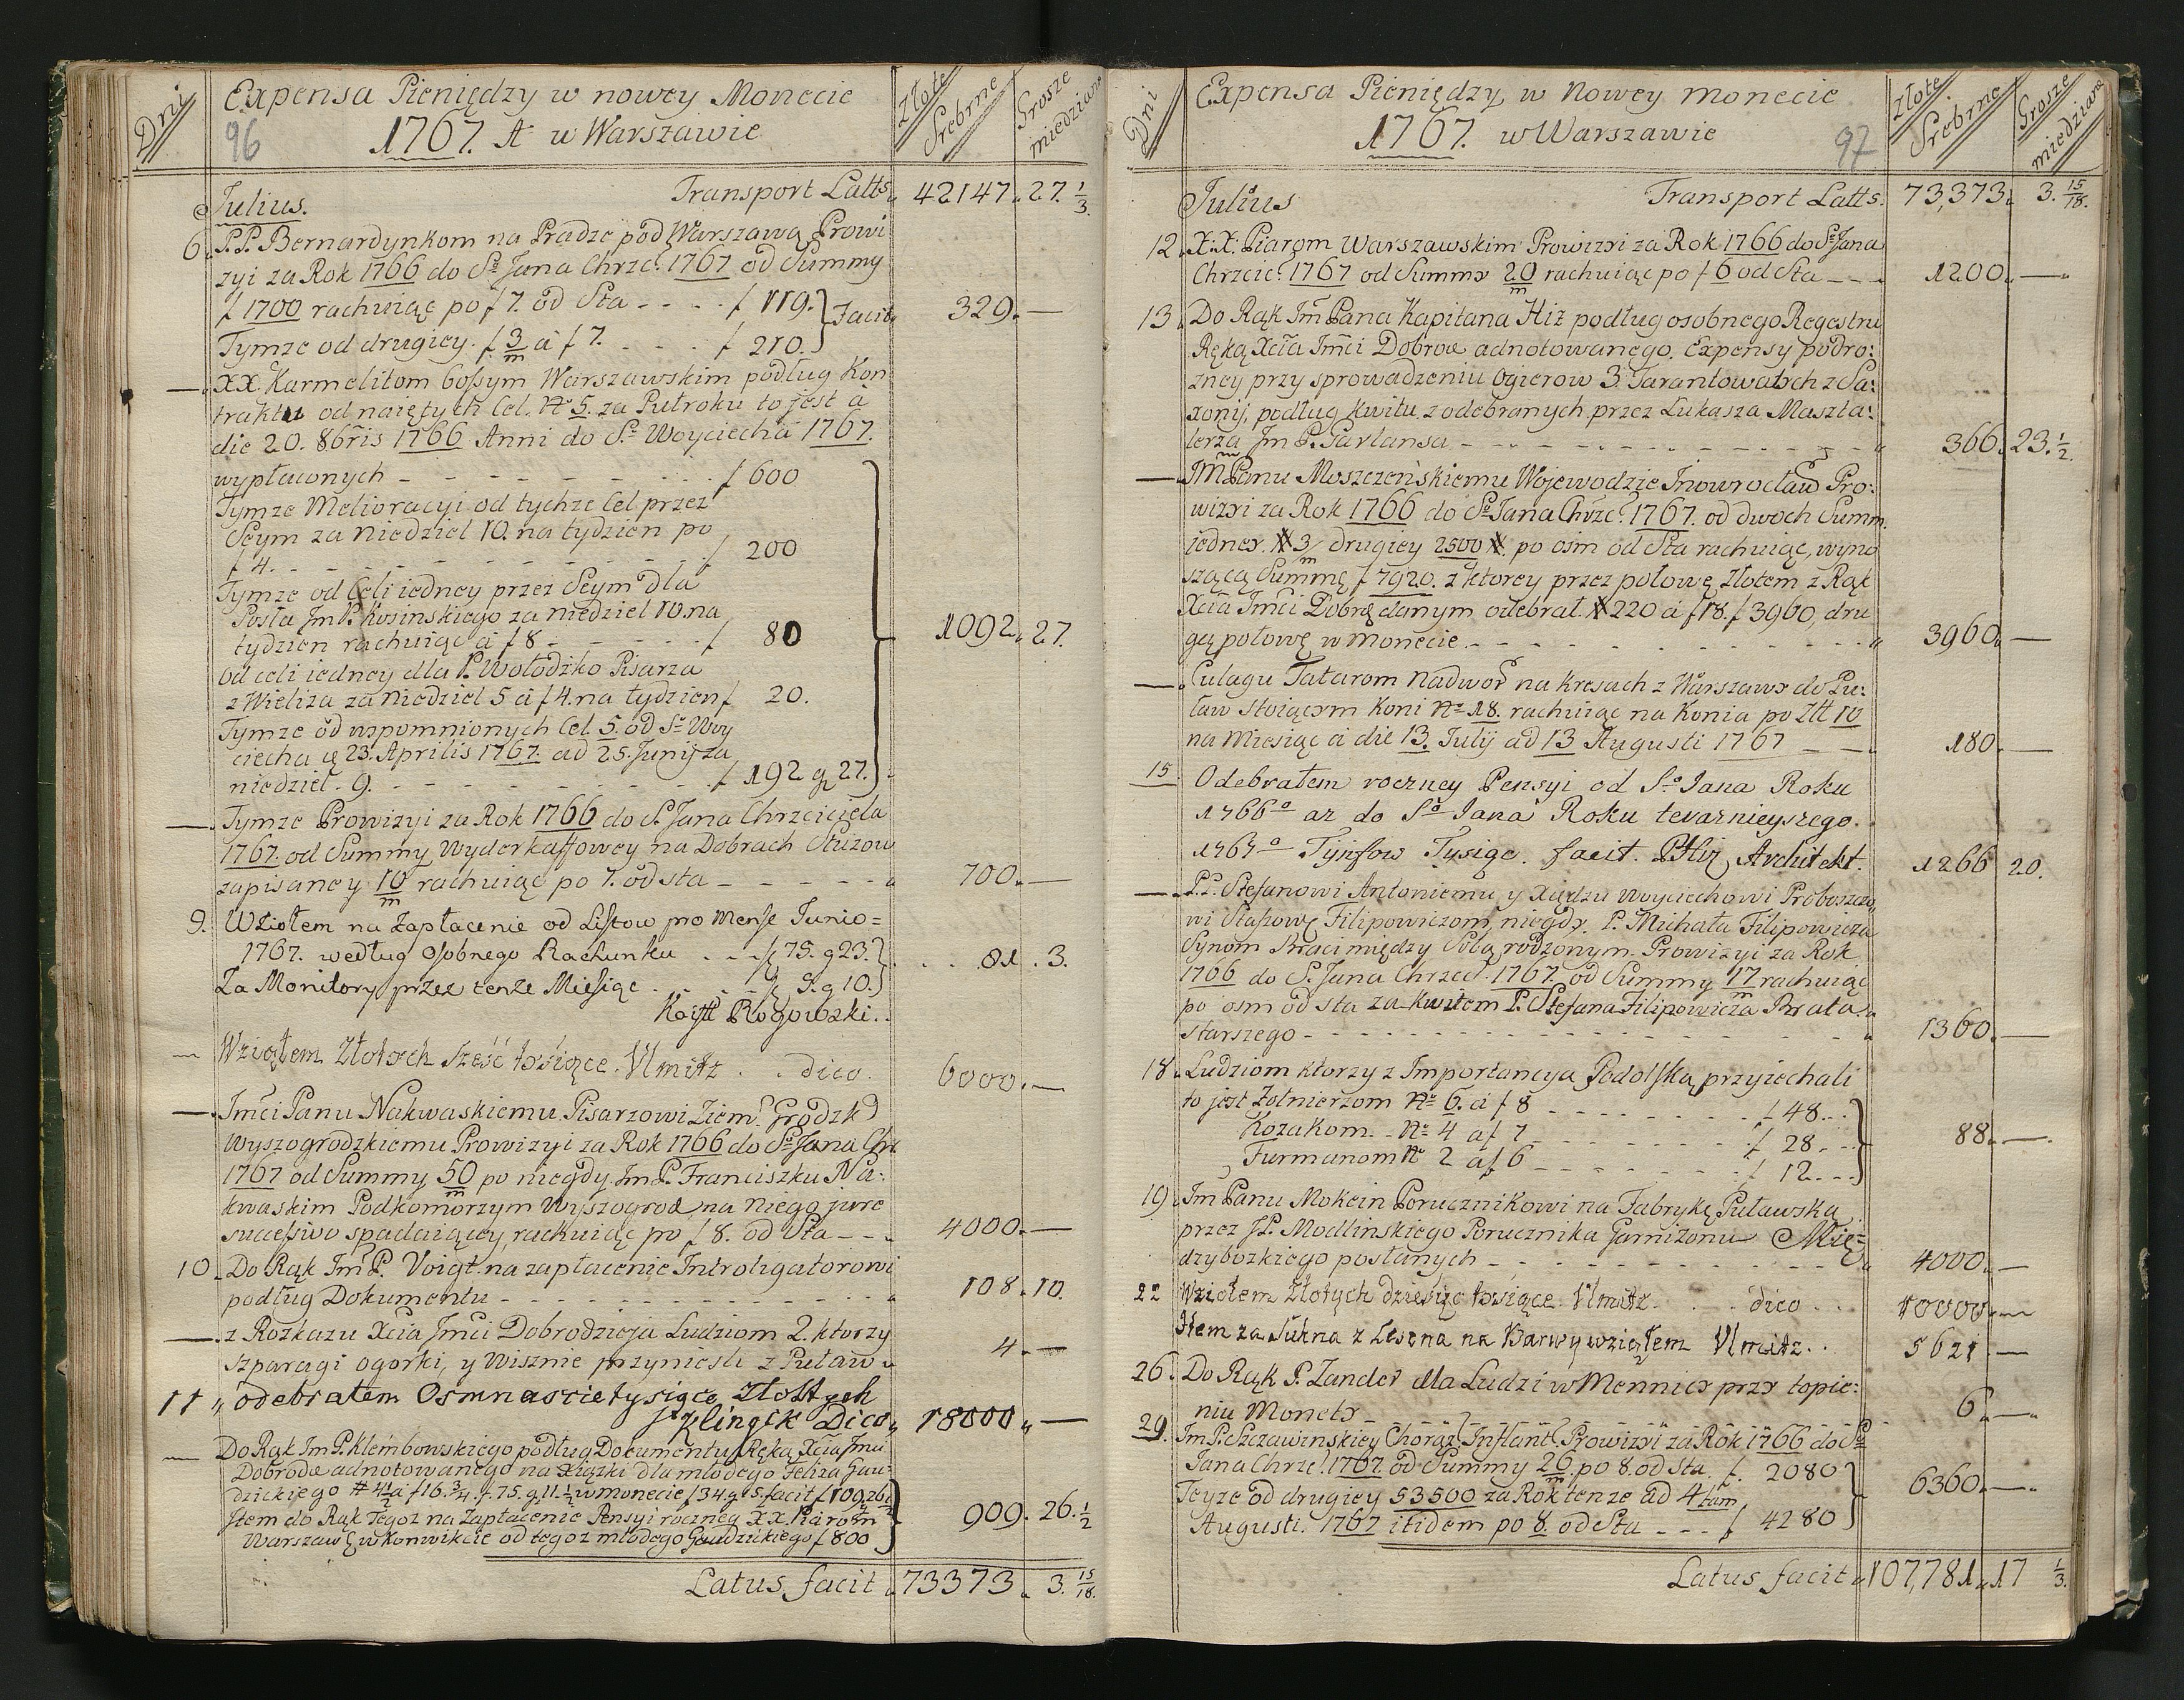 Dni
Expensa Pieniędzy w nowey Monecie
96
1767. A w Warszawie
Złote Srebrne
Grosze miedziane
Julius.
Transport Latts. 42147. 27. 1/3.
6. P.P. Bernardynkom na Pradze pod Warszawą Prowi
zyi za Rok 1766 do Sgo Jana Chrzc: 1767 od Summy
f 1700 rachuiąc po f 7. od Sta - - - - f 119.
Facit 329. —
Tymze od drugiey. f 3/m á f 7. - - - f 210.
—. XX. Karmelitom bossym Warszawskim podług Kon
traktu od naiętych Cel. No 5. za Pułroku to jest a
die 20. 8bris 1766 Anni do Sgo Woyciecha 1767.
wypłaconych - - - - - - - - f 600
Tymze Melioracyi od tychze Cel przez
Seym za Niedziel 10. na tydzien po
f 4. - - - - - - - - f 200
Tymze od Celi iedney przez Seym dla
Posła Jm P. Kosinskiego za niedziel 10. na
tydzien rachuiąc á f 8 - - - - - f 80
1092. 27.
od celi iedney dla P. Wołodzko Pisarza
z Wieliza za Niedziel 5 á f 4. na tydzien f 20.
Tymze od wspomnionych Cel. 5. od Sgo Woy
ciecha 23. Aprilis 1767. ad 25. Junij za
niedziel. 9. - - - - - - - - f 192 g 27.
—. Tymze Prowizyi za Rok 1766 do S. Jana Chrzciciela
1767. od Summy Wyderkaffowey na Dobrach Służow
zapisaney 10/m rachuiąc po 7. od sta - - - - - 700. —
9. Wziołem na Zapłacenie od Listow pro Mense Junio=
1767. według Osobnego Rachunku . . . f 75. g 23.
81. 3.
Za Monitory przez tenze Miesiąc . . . . f 5. g 10.
Rogowski.
— Wziąłem Złotych sześć tysiące. Ulmitz . . dico. 6000. —
—. Jmci Panu Nakwaskiemu Pisarzowi Ziem: Grodzk
Wyszogrodzkiemu Prowizyi za Rok 1766 do Sgo Jana Chr.
1767 od Summy 50/m po niegdy Jm P. Franciszku Na:
kwaskim Podkomorzym Wyszogrod na niego jure
successivo spadaiącey, rachuiąc po f 8. od Sta - - - 4000. —
10. Do Rąk Jm P. Voigt. na zapłacenie Introligatorowi
podług Dokumentu - - - - - - - - - - 108. 10.
—. z Rozkazu Xcia Jmci Dobrodzieja Ludziom 2. ktorzy
szparagi ogorki, y Wisznie przyniesli z Puław 4. —
11 odebrałem Osmnascie tysięcy Złottych
Klingik Dico 18000. —
— Do Rąk Jm P. Klembowskiego podług Dokumentu Ręką Xcia Jmci
Dobrodz adnotowanego na Xiązki dla młodego Felixa Gau-
dzickiego # 4 1/2 á f 16. 3/4. f. 75. g. 11. 1/2 w monecie f 34. g 15. facit f 109. 26 1/2
Item do Rąk Tegoz na Zapłacenie Pensyi roczney XX. Piarom
909. 26. 1/2
Warszaw w Konwikcie od tegoz młodego Gaudzickiego f 800
Latus facit 73373. 3. 15/18.
Dni
Expensa Pieniędzy w Nowey monecie
1767. w Warszawie
97
Złote Srebrne
Grosze miedziane
Julius
Transport Latts. 73,373. 3. 15/18.
12. X.X. Piarom Warszawskim Prowizyi za Rok 1766 do Sgo Jana
Chrzcic: 1767 od Summy 20/m rachuiąc po f 6 od Sta - - - 1200. —
13. Do Rąk Jm Pana Kapitana Hiz podług osobnego Regestru
Ręką Xcia Jmci Dobrodz adnotowanego. Expensy podro:
zney przy sprowadzeniu Ogierow 3. Tarantowatych z Sa:
xonij, podług kwitu, z odebranych przez Lukasza Maszta:
lerza Jm P. Parlansa - - - - - - - - - - 366. 23. 1/2.
—. JM Panu Moszczeńskiemu Wojewodzie Inowrocław Pro:
wizyi za Rok 1766 do Sgo Jana Chrzc: 1767. od dwoch Summ.
jedney. # 3/m drugiey 2500 #. po osm od Sta rachuiąc, wyno
szącą Summę f 7920. z ktorey przez połowę Złotem z Rąk
Xcia Jmci Dobrodz danym odebrał. # 220 á f 18. f 3960, dru
gą połowę w Monecie. - - - - - - - - - - 3960. —
—. Culagu Tatarom Nadwor na Kresach z Warszawy do Pu:
ław stoiącym Koni No 18. rachuiąc na Konia po Złł 10
na Miesiąc á die 13. Julij ad 13 Augusti 1767 - - - 180. —
15. Odebrałem roczney Pensyi od Sgo Jana Roku
1766o az do Sgo Jana Roku teraznieyszego.
1767o Tynfow Tysiąc. facit. P. Hiz Architekt. 1266 20.
—. P.P. Stefanowi Antoniemu y Xiędzu Woyciechowi Proboszczo
wi Filipowiczom, niegdy. P. Michała Filipowicza
Synom Braci między Sobą rodzonym. Prowizyi za Rok
1766 do S. Jana Chrzcic: 1767. od Summy 17/m rachuiąc
po osm od sta za kwitem P. Stefana Filipowicza Brata
starszego - - - - - - - - - - - - 1360. —
18. Ludziom ktorzy z Importancya Podolską przyiechali
to jest Zołnierzom No 6. á f 8 - - - - - - - f 48.
Kozakom. No 4 á f 7 - - - - - - - f 28.
88. —.
Furmanom No 2 á f 6 - - - - - - - f 12.
19. Jm Panu Mokcin Porucznikowi na Fabrykę Puławską
przez J P. Modlinskiego Porucznika Garnizonu Mię=
dzybozkiego posłanych - - - - - - - - - 4000. —
22 Wziołem Złotych dziesięc tysiące. Ulmitz. . . . dico . . . 10000. —
Item za Sukna z Leszna na Barwy wziąłem Ulmitz. . 5621. —
26. Do Rąk P. Zander dla Ludzi w Mennicy przy topie:
niu Monety - - - - - - - - - - 6. —
29. Jm P. Szczawinskiey Choraz. Inflant. Prowizyi za Rok 1766 do Sgo
Jana Chrzc: 1767. od Summy 26/m po 8. od Sta f. 2080
6360. —.
Teyze od drugiey 53500 za Rok tenze ad 4tam
Augusti. 1767 itidem po 8. od Sta - - - f 4280
Latus facit 107,781. 17 1/3.